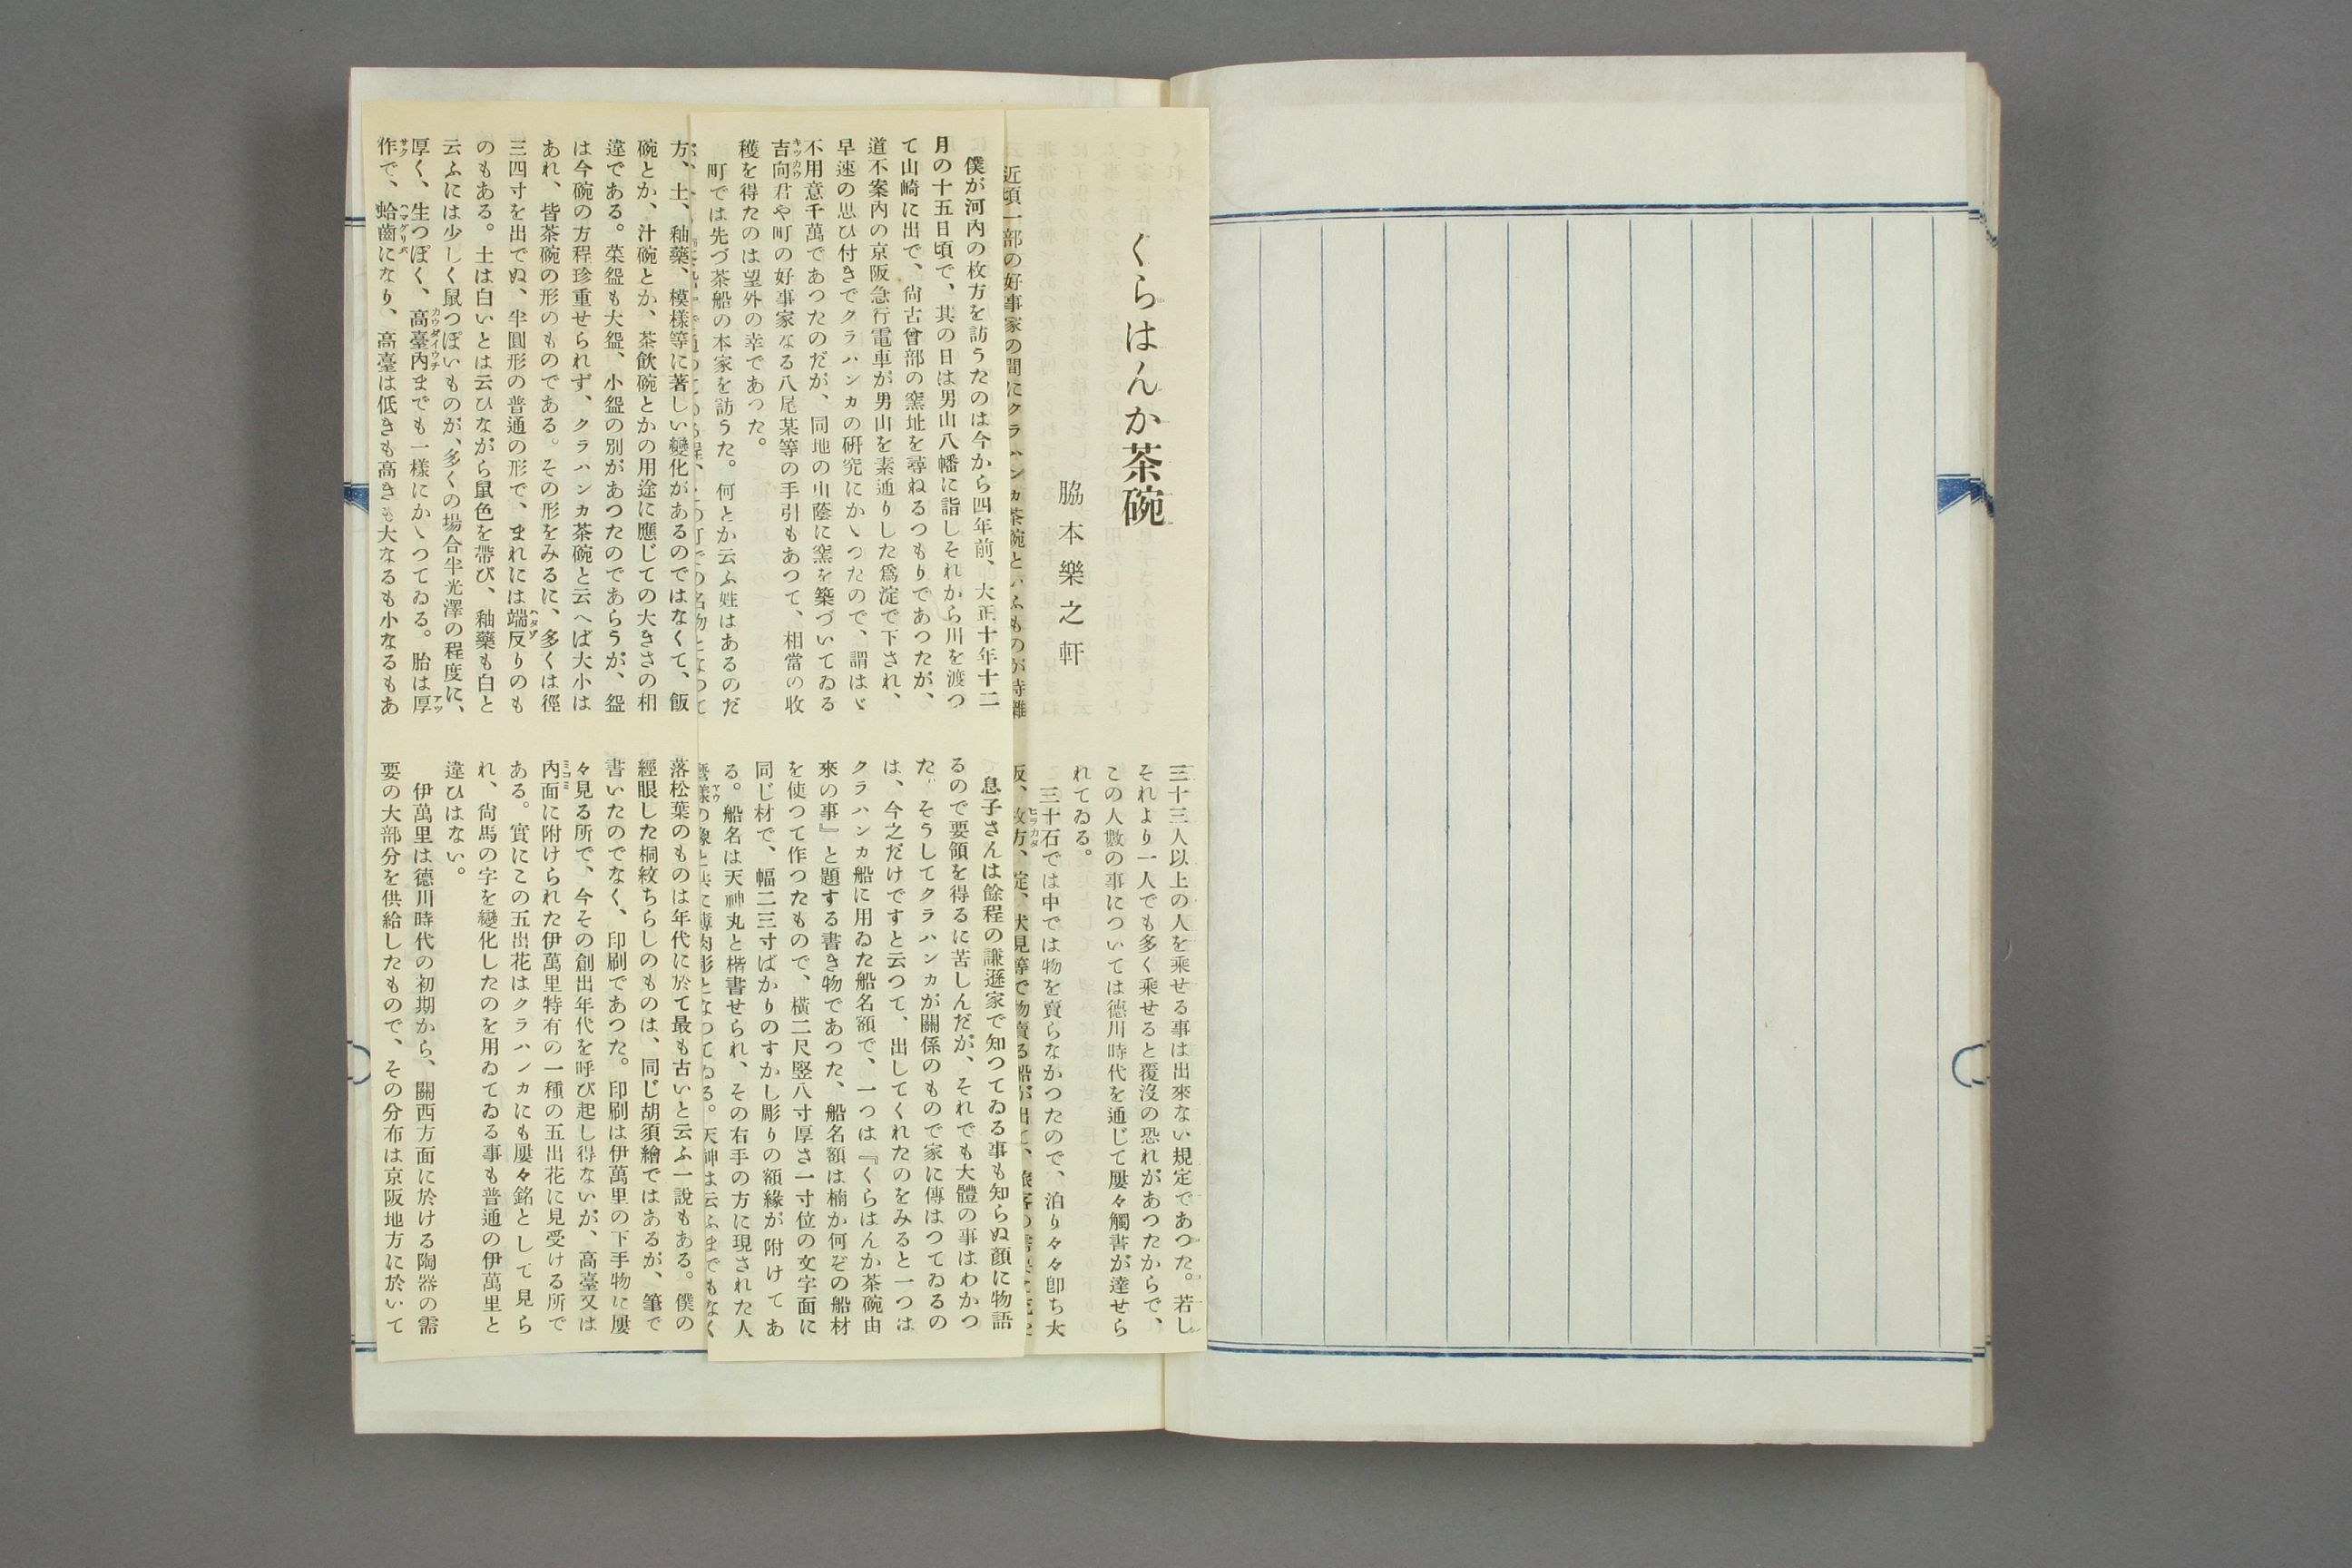 くらはんか茶碗
脇本樂之軒
近頃一部の好事家の間にクラハンカ茶碗といふものが持囃
三十三人以上の人を乘せる事は出來ない規定であつた。若し
それより一人でも多く乘せると覆沒の恐れがあつたからで、
この人數の事については德川時代を通じて屢々觸書が達せら
れてゐる。
三十石では中では物を賣らなかつたので、泊り々々卽ち大
僕が河內の枚方を訪うたのは今から四年前、大正十年十二
月の十五日頃で、其の日は男山八幡に詣しそれから川を渡つ
て山崎に出で、尙古曾部の窯址を尋ねるつもりであつたが、
道不案內の京阪急行電車が男山を素通りした爲淀で下され、
早速の思ひ付きでクラハンカの硏究にかゝつたので、謂はゞ
不用意千萬であつたのだが、同地の山蔭に窯を築づいてゐる
吉向君や町の好事家なる八尾某等の手引もあつて、相當の收
穫を得たのは望外の幸であつた。
町では先づ茶船の本家を訪うた。何とか云ふ姓はあるのだ
息子さんは餘程の謙遜家で知つてゐる事も知らぬ顏に物語
るので要領を得るに苦しんだが、それでも大體の事はわかつ
た。そうしてクラハンカが關係のもので家に傳はつてゐるの
は、今之だけですと云つて、出してくれたのをみると一つは
クラハンカ船に用ゐた船名額で、一つは『くらはんか茶碗由
來の事』と題する書き物であつた、船名額は楠か何ぞの船材
を使つて作つたもので、橫二尺竪八寸厚さ一寸位の文字面に
同じ材で、幅二三寸ばかりのすかし彫りの額緣が附けてあ
る。船名は天神丸と楷書せられ、その右手の方に現された人
方、土、釉藥、模樣等に著しい變化があるのではなくて、飯
碗とか、汁碗とか、茶飮碗とかの用途に應じての大きさの相
違である。菜盌も大盌、小盌の別があつたのであらうが、盌
は今碗の方程珍重せられず、クラハンカ茶碗と云へば大小は
あれ、皆茶碗の形のものである。その形をみるに、多くは徑
三四寸を出でぬ、半圓形の普通の形で、まれには端反りのも
のもある。土は白いとは云ひながら鼠色を帶び、釉藥も白と
云ふには少しく鼠つぽいものが、多くの場合半光澤の程度に、
厚く、生つぽく、高臺內までも一樣にかゝつてゐる。胎は厚
作で、蛤齒になり、高臺は低きも高きも大なるも小なるもあ
落松葉のものは年代に於て最も古いと云ふ一說もある。僕の
經眼した桐紋ちらしのものは、同じ胡須繪ではあるが、筆で
書いたのでなく、印刷であつた。印刷は伊萬里の下手物に屢
々見る所で、今その創出年代を呼び起し得ないが、高臺又は
內面に附けられた伊萬里特有の一種の五出花に見受ける所で
ある。實にこの五出花はクラハンカにも屢々銘として見ら
れ、尙馬の字を變化したのを用ゐてゐる事も普通の伊萬里と
違ひはない。
伊萬里は德川時代の初期から、關西方面に於ける陶器の需
要の大部分を供給したもので、その分布は京阪地方に於いて